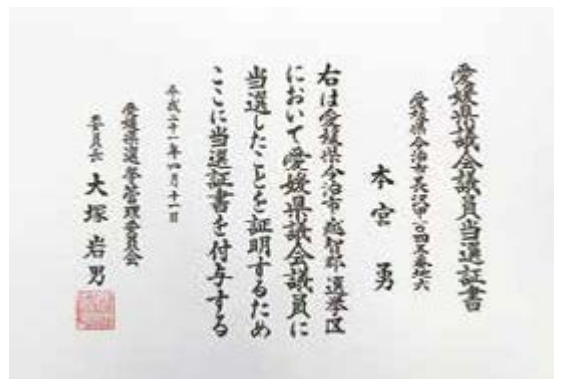 愛媛県議会議員当選証書
愛媛県今治市長沢甲一〇四五番地六
本宮 勇
右は愛媛県今治市越智郡選挙区
において愛媛県議会議員に
当選したことを証明するため
ここに当選証書を付与する
平成二十一年四月十一日
愛媛県選挙管理委員会
委員長 大塚岩男